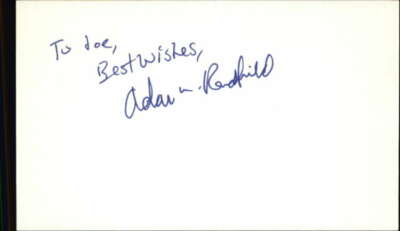 To Joe,
Best Wishes,
Adam Redfield